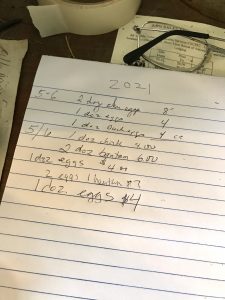 2021
5-6 2 doz eggs 8
1 doz eggs 4
1 doz Duck eggs 4
5/6 1 doz 4.00
2 doz bantam 6.00
1 doz eggs $4
2 eggs 1 bantam $7
1 doz eggs $4